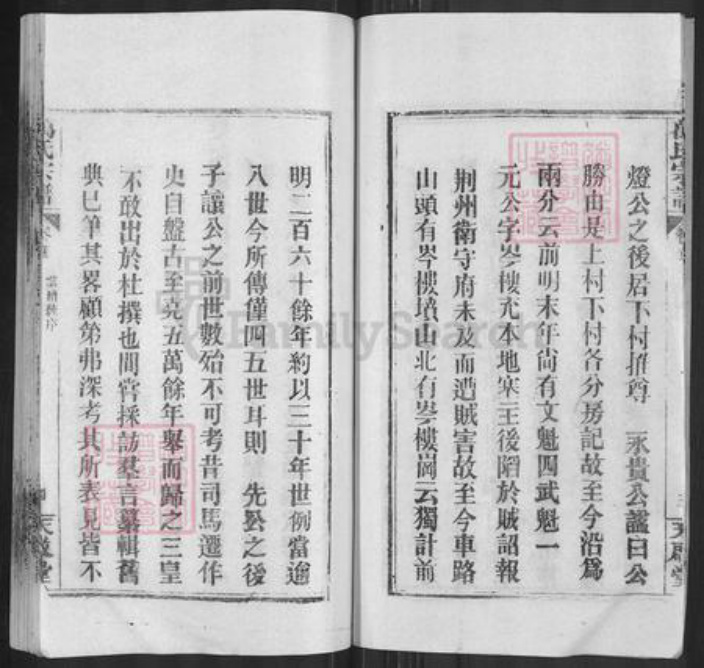 燈公之後居下村推尊　永貴公謚曰公
勝由是上村下村各分房記故至今沿爲
兩分云前明末年尙有文魁四武魁一
元公字岑樓充本地寨王後陷於賊詔報
荆州衛守府未及而遭賊害故至今車路
山頭有岑樓墳山北有岑樓崗云獨計前
明二百六十餘年約以三十年世例當逾
入世今所傳僅四五世耳則　先公之後
子讓公之前世數殆不可考昔司馬遷作
史自盤古至堯五萬餘年舉而歸之三皇
不敢出於杜撰也間嘗採訪羣言纂輯舊
典巳筆其畧顧第弗深考其所表見皆不
氏宗譜
FamilySearch